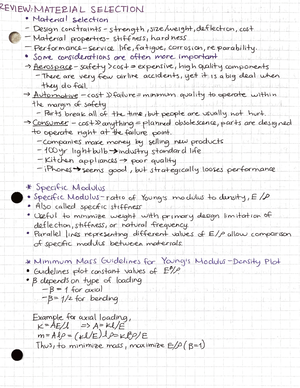 REVIEW: MATERIAL SELECTION
• Material selection
- Design constraints - strength, size/weight, deflection, cost
- Material properties - stiffness, hardness
- Performance - service life, fatigue, corrosion, reparability.
• Some considerations are often more important
→ Aerospace - safety > cost → expensive, high quality components
- There are very few airline accidents, yet it is a big deal when
they do fail.
→ Automotive - cost ≥ failure → minimum quality to operate within
the margin of safety
- Parts break all of the time, but people are usually not hurt.
→ Consumer - cost > anything → planned obsolescence, parts are designed
to operate right at the failure point.
- companies make money by selling new products
- 100 yr lightbulb → industry standard life
- Kitchen appliances → poor quality
- iPhones → seems good, but strategically loses performance
* Specific Modulus
• Specific Modulus - ratio of Young's modulus to density, E/ρ
• Also called specific stiffness
• Useful to minimize weight with primary design limitation of
deflection, stiffness, or natural frequency.
• Parallel lines representing different values of E/ρ allow comparison
of specific modulus between materials.
* Minimum Mass Guidelines for Young's Modulus - Density Plot
• Guidelines plot constant values of E^β/ρ
• β depends on type of loading
- β = 1 for axial
- β = 1/2 for bending
Example for axial loading,
k = AE/l ⇒ A = kl/E
m = Alρ = (kl/E)lρ = kl²ρ/E
Thus, to minimize mass, maximize E/ρ (β=1)